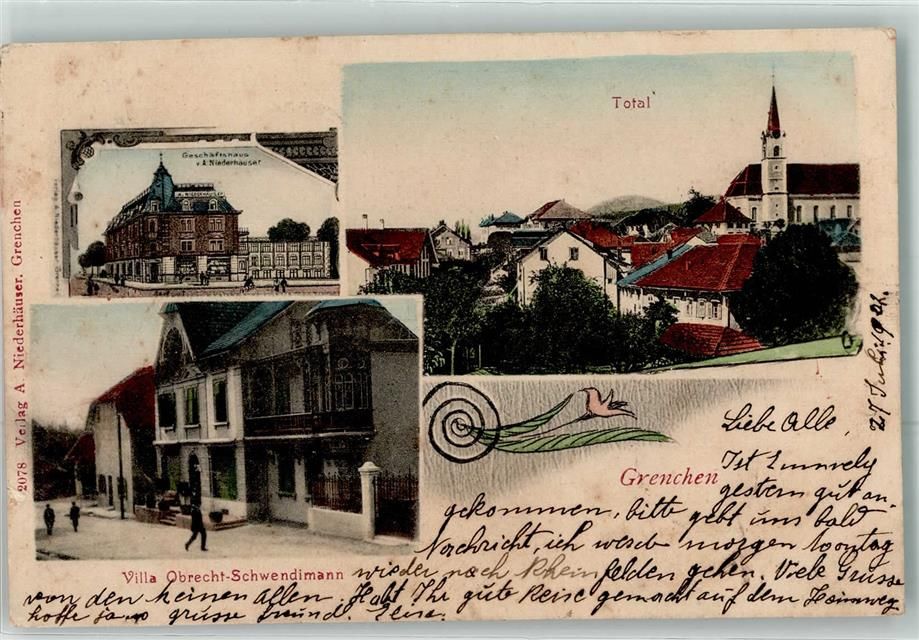 Total
Geschäftshaus
v. A. Niederhäuser
A. NIEDERHÄUSER
2078 Verlag A. Niederhäuser. Grenchen
Villa Obrecht-Schwendimann
Grenchen
27 1902.
Liebe Alle,
Ist
gestern gut an-
gekommen, bitte gebt uns bald
Nachricht, ich werde morgen Sontag
wieder nach Rheinfelden gehen. Viele Grüsse
von den keinen Allen. Habt Ihr gute Reise gemacht auf dem Heimweg
hoffe ja grüsse freundl. Elise.